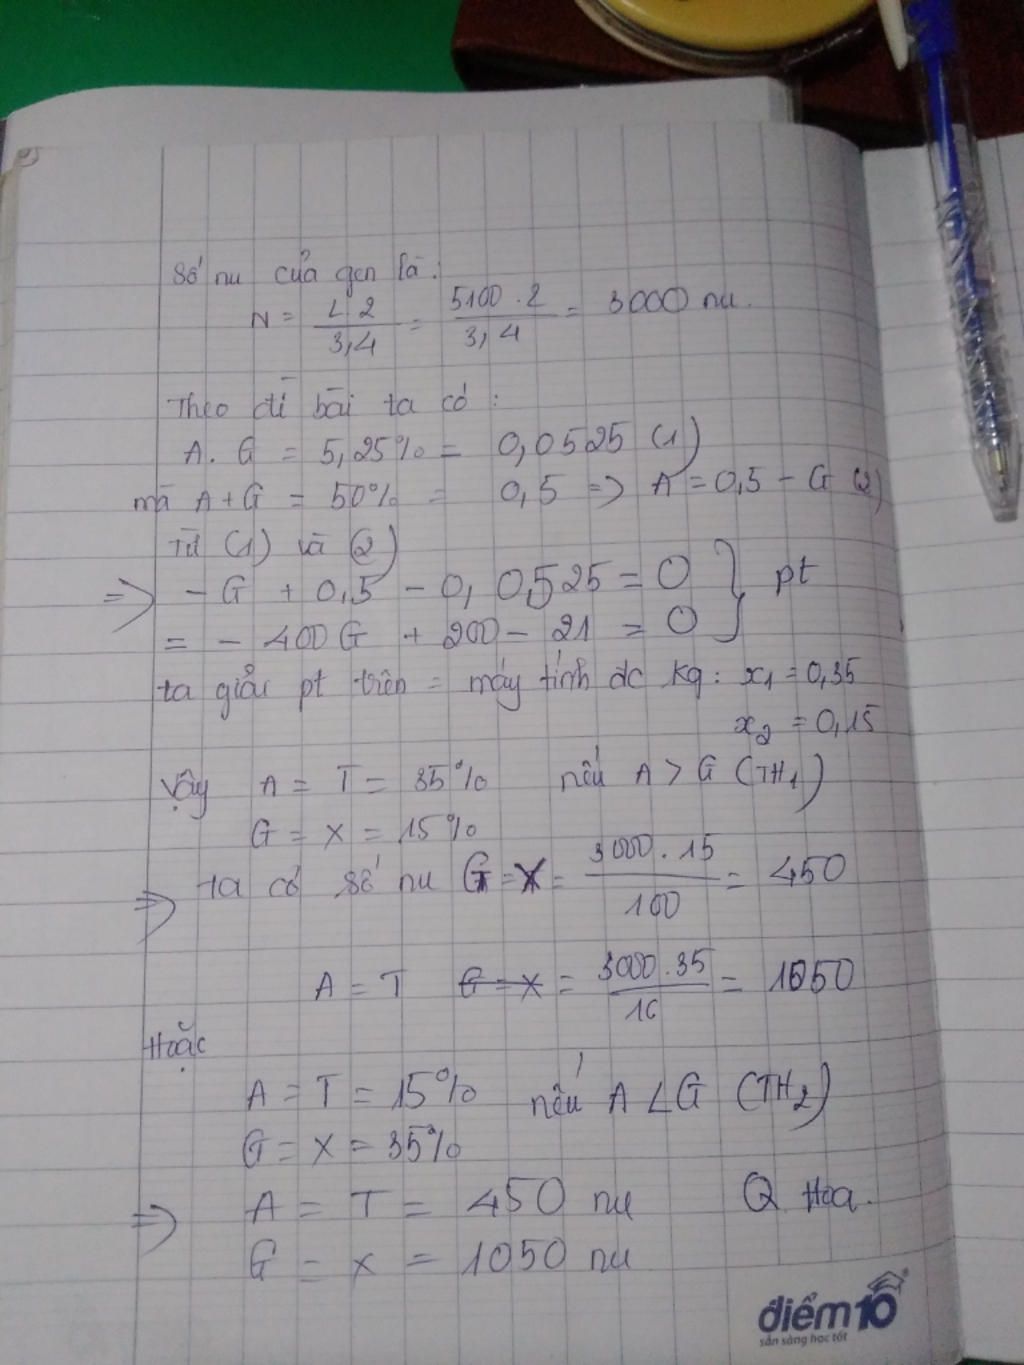 Số nu của gen là:
N = L 2 / 3,4 = 5100 . 2 / 3,4 = 3000 nu.
Theo đề bài ta có :
A. G = 5,25% = 0,0525 (1)
mà A+G = 50% = 0,5 => A = 0,5 - G (2)
Từ (1) và (2)
=> - G + 0,5 - 0,0525 = 0 } pt
= - 400G + 200 - 21 = 0
ta giải pt trên = máy tính đc kq: x1 = 0,35
x2 = 0,15
Vậy A = T = 35% nếu A > G (TH1)
G = X = 15%
=> ta có số nu G = X = 3000 . 15 / 100 = 450
A = T G = X = 3000 . 35 / 10 = 1050
Hoặc
A = T = 15% nếu A < G (TH2)
G = X = 35%
=> A = T = 450 nu Q Hoa.
G = X = 1050 nu
điểm10
sẵn sàng học tốt